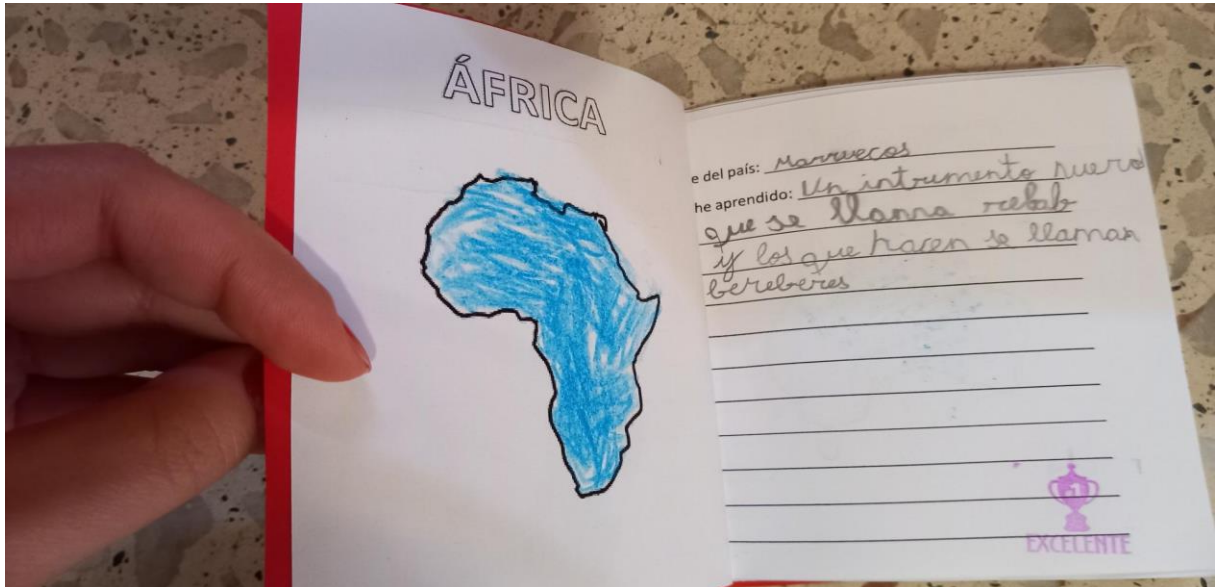 ÁFRICA
e del país: Marruecos
he aprendido: Un intrumento nuevo
que se llama rebab
y los que hacen se llaman
bereberes
1
EXCELENTE